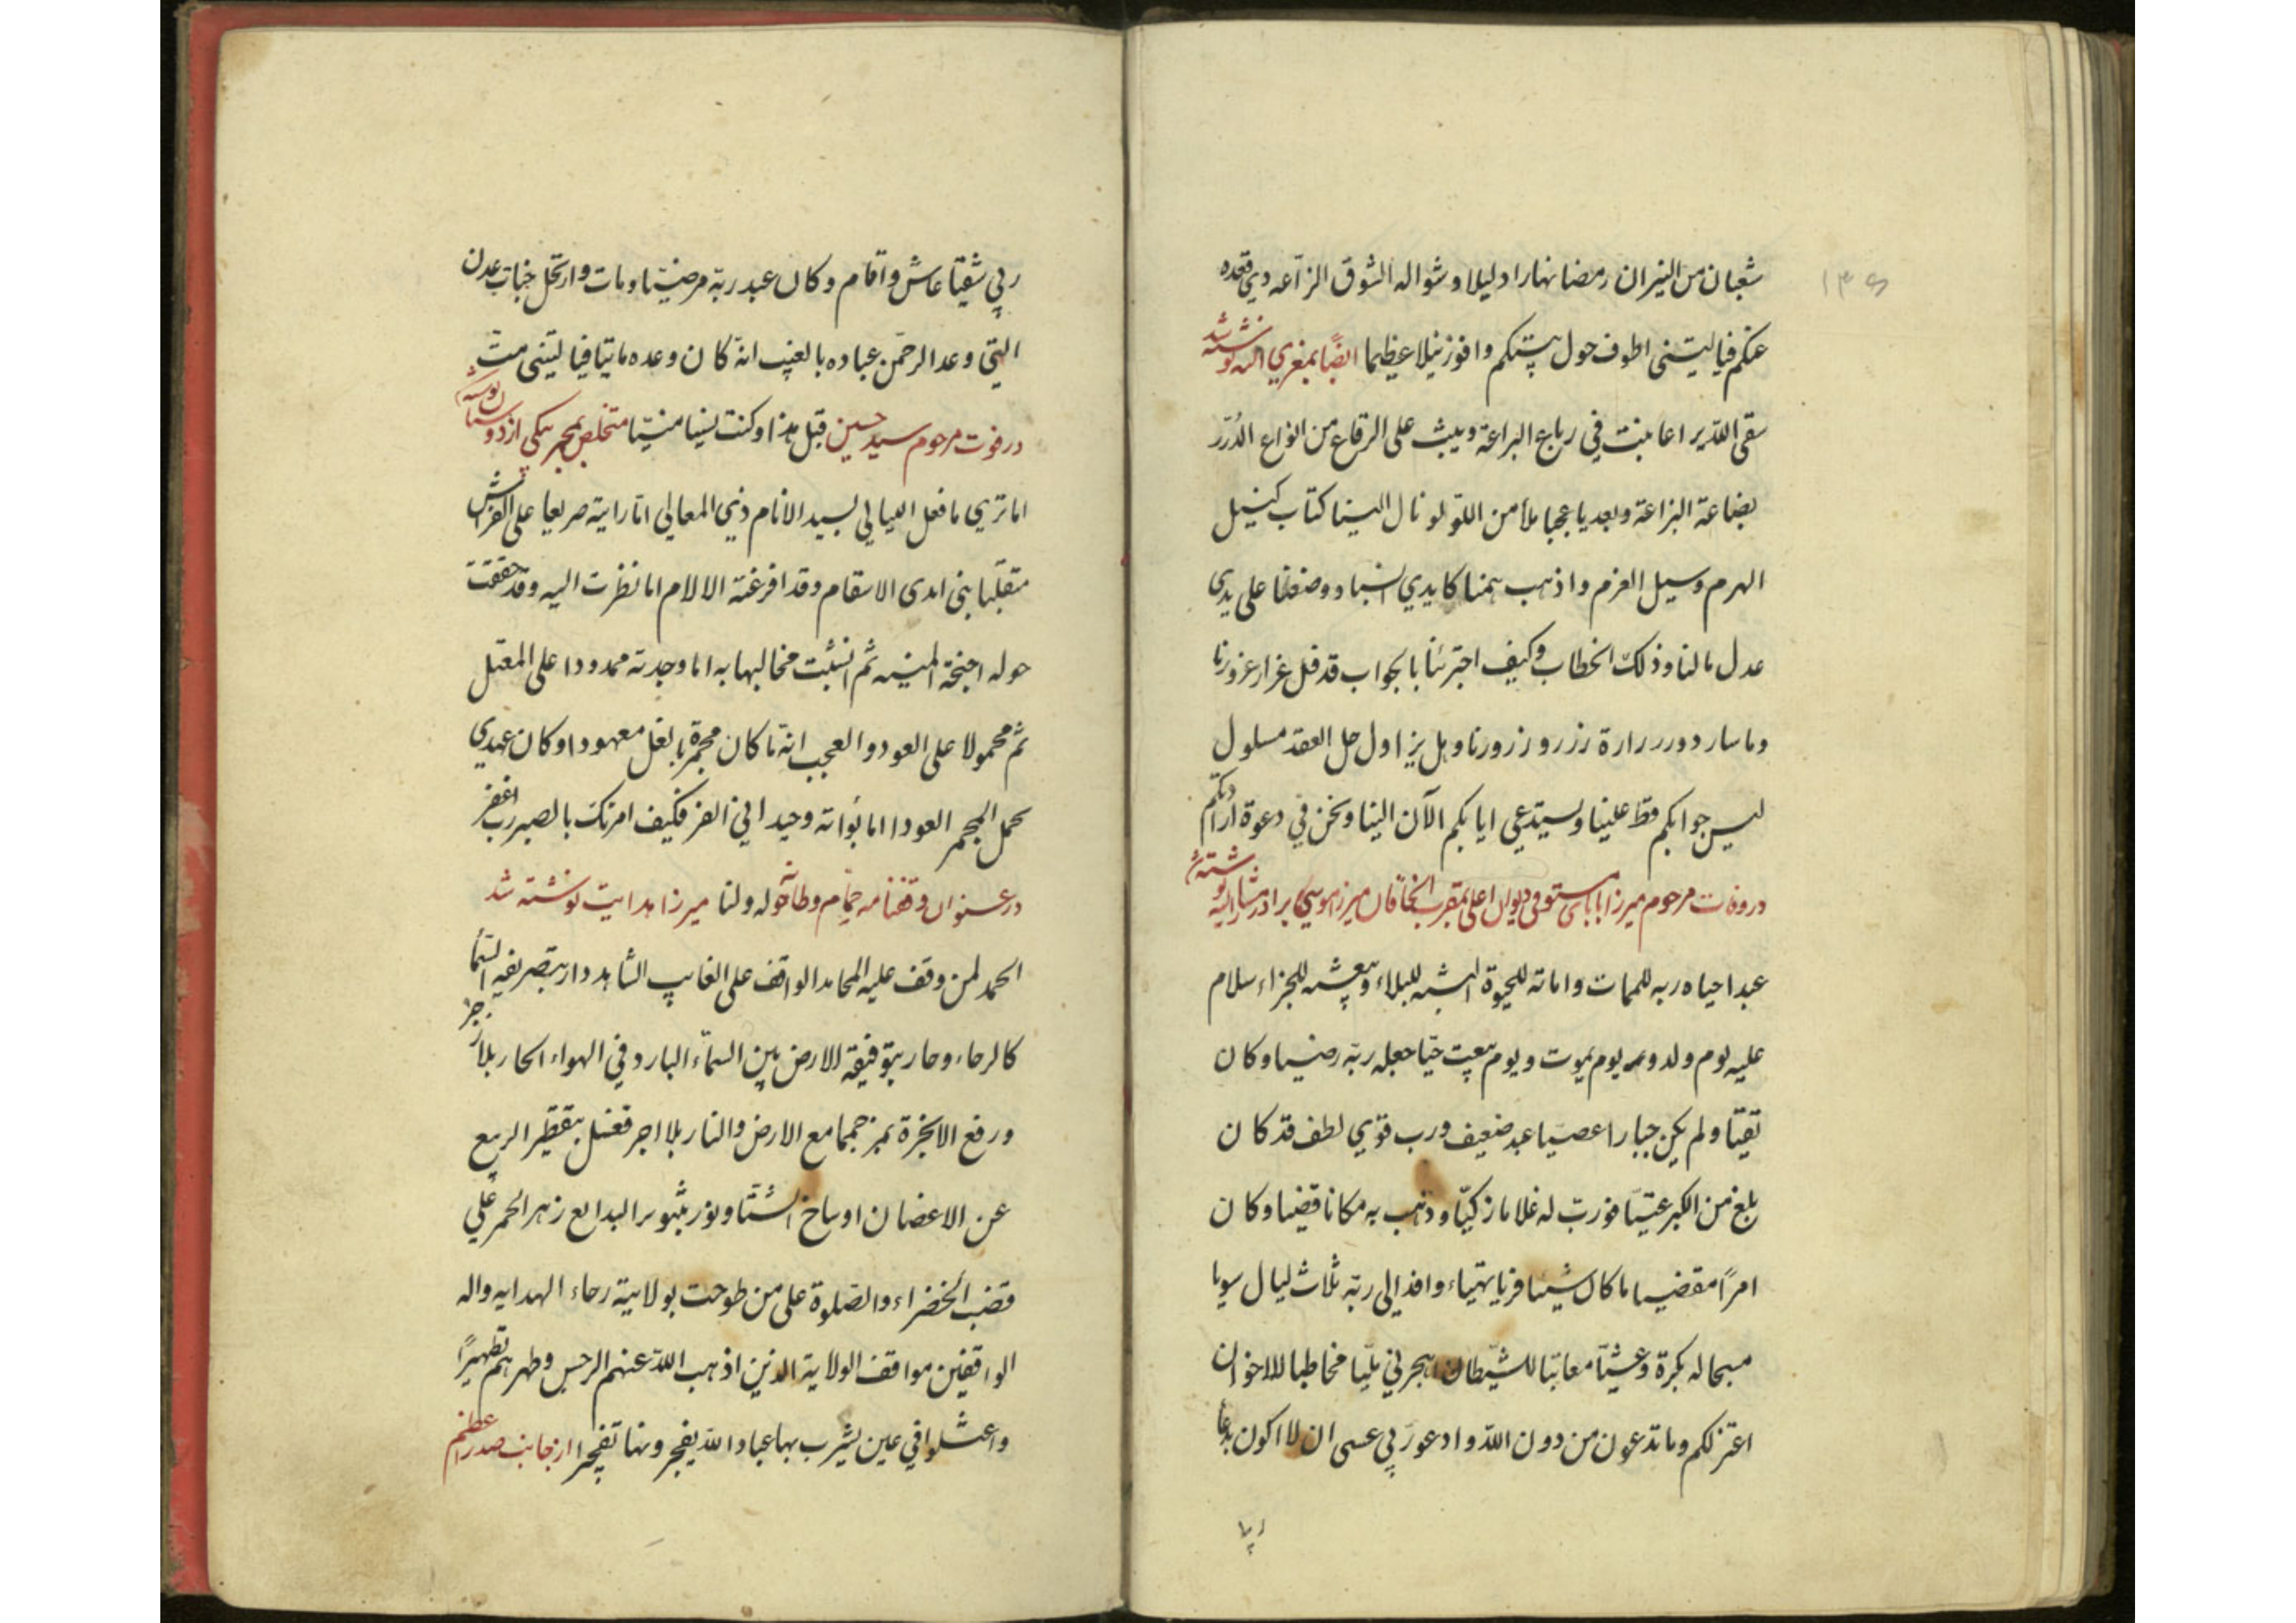 ۱۳۶
شعبان من النیران رمضا نهارا و لیلا و شواله الشوق الزاعه ذی قعده
عنکم فیا لیتنی اطوف حول بیتکم و افوز نیلا عظیما ایضا بمغری الیه نوشته شد
سقی الله یراعا ینبت فی رباع البراعة و یبث علی الرقاع من انواع الدُرَر
بضاعة البزاعة و بعد یا عجبا ملأ من اللؤلؤ نال الینا کتاب کنیل
الهرم و سیل العرم و اذهب همنا کایدی سبا و وضعنا علی یدی
عدل ما لنا و ذلک الخطاب و کیف اجترئنا بالجواب قد فل غرار غرورنا
و ما سار دور زرارة زرزور زورنا و هل یزاول حل العقد مسلول
لیس جوابکم قط علینا و یستدعی ایابکم الآن الینا و نحن فی دعوة ارادتکم
در وفات مرحوم میرزا بابای مستوفی دیوان اعلی بمقرب الخاقان میرزا موسی برادر مشار الیه نوشته شد
عبد احیاه ربه للممات و اماته للحیوة البسه للبلاء و یبعثه للجزاء سلام
علیه یوم ولد و یوم یموت و یوم یبعث حیّا جعله ربّه رضیا و کان
تقیّا و لم یکن جبارا عصیّا عبد ضعیف و رب قوی لطف قد کان
بلغ من الکبر عتیّا فورث له غلاما زکیّا و ذهب به مکانا قضیا و کان
امرًا مقضیا ما کان شیئا فریا بتهیاء وافد الی ربّه ثلاث لیال سویا
سبحا له بکرة و عشیّا معاتبا للشیطان اهجرنی ملیّا مخاطبا للاخوان
اعتزلکم و ما تدعون من دون الله و ادعو ربّی عسی ان لا اکون بدعا
ربی شقیّا عاش و اقام و کان عبد ربّه مرضیّا و مات و ارتحل جنات عدن
التی وعد الرحمن عباده بالغیب انه کان وعده ماتیا فیا لیتنی متّ
در فوت مرحوم سید حسین قبل هذا و کنت نسیا منسیّا متخلص بمجمر یکی از دوستان نوشته
اما تری ما فعل اللیالی بسید الانام ذی المعالی اما رایته صریعا علی الفراش
متقلّبا بنی ایدی الاسقام و قد افرغته الالام اما نظرت الیه و قد حققت
حوله اجنحة المنیه ثم انشبت مخالبها به اما وجدته ممدودا علی المغتسل
ثم محمولا علی العود و العجب انه ما کان مجمرة بالفعل معهودا و کان عهدی
بحمل المجمر العودا اما بواته وحیدا فی القبر فکیف امرتک بالصبر رب اغفر
در عنوان وقفنامه حمام و طاحونه و لنا میرزا هدایت نوشته شد
الحمد لمن وقف علیه المحامد الواقف علی الغایب الشاهد دار بتصریفه السماء
کالرحاء و حار بتوفیقه الارض بین السماء البارد فی الهواء الحار بلا زجر
و رفع الابخرة بمزجهما مع الارض و النار بلا اجر فغسل بتقطیر الربیع
عن الاغصان اوساخ الشتا و نور بنور البدایع زهر الحمر علی
قضب الخضراء و الصلوة علی من طوحت بولایته رحاء الهدایه و اله
الواقفین مواقف الولایة الذین اذهب الله عنهم الرجس و طهرهم تطهیرًا
و اغتسلوا فی عین یشرب بها عباد الله یفجرونها تفجیرا از جانب صدر اعظم